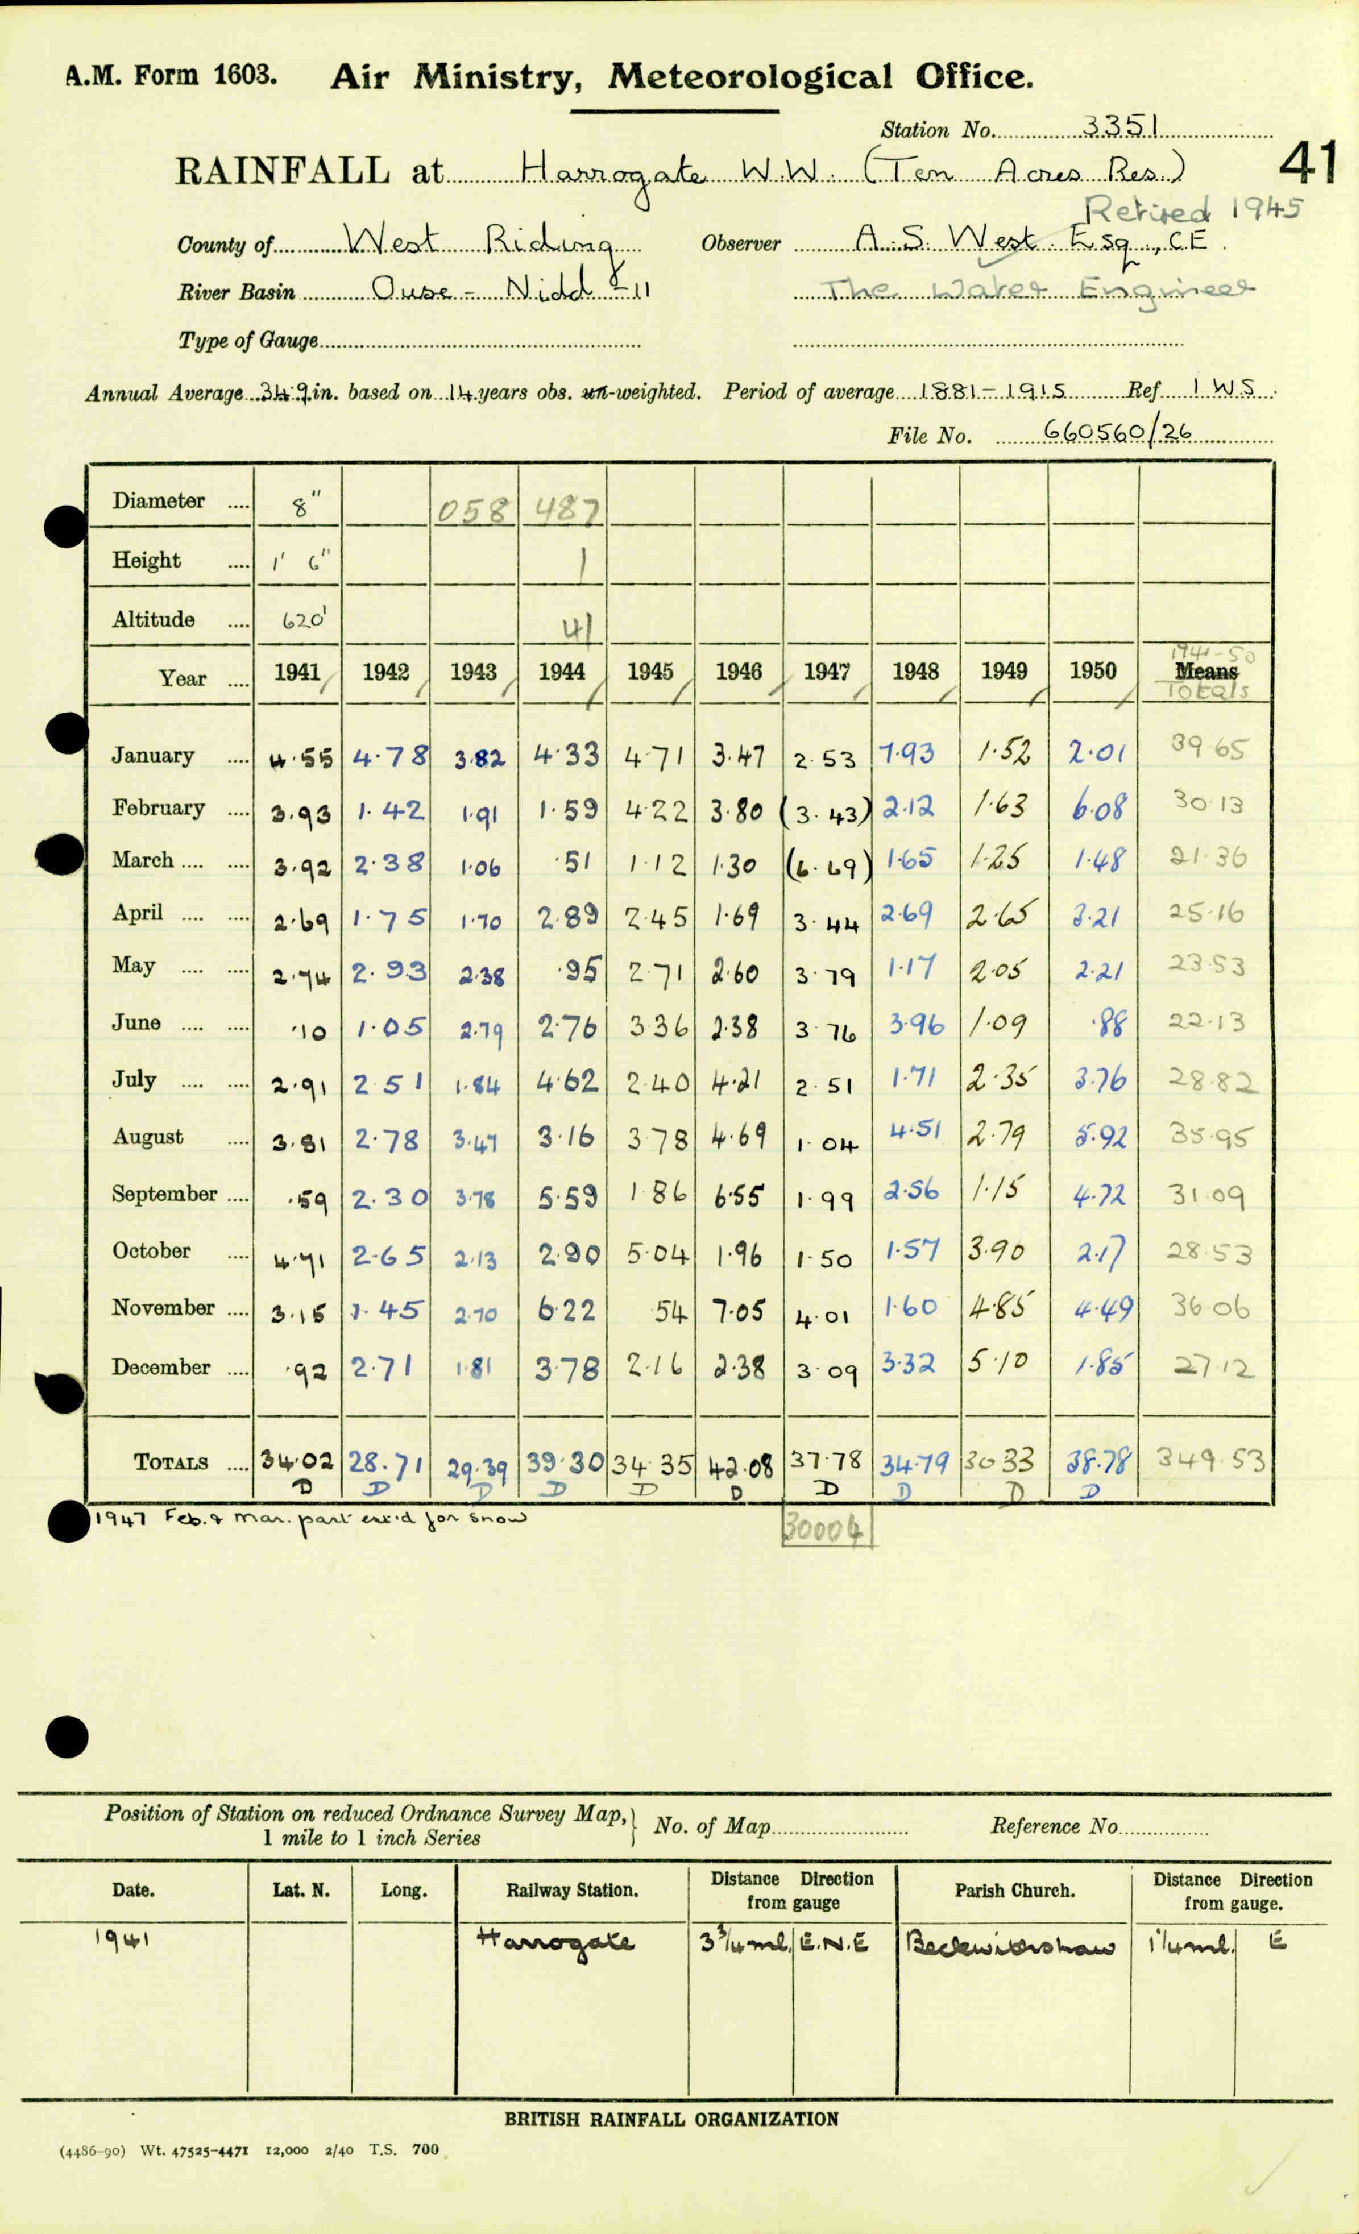 A.M. Form 1603. Air Ministry, Meteorological Office.
Station No. 3351
41
RAINFALL at Harrogate W.W. (Ten Acres Res.)
Retired 1945
County of West Riding Observer A.S. West Esq., C.E.
River Basin Ouse - Nidd - 11 The Water Engineer
Type of Gauge
Annual Average 34.9 in. based on 14 years obs. un-weighted. Period of average 1881-1915 Ref 1 WS
File No. 660560/26
Diameter .... 8" 058 487
Height .... 1' 6" 1
Altitude .... 620' 41
1941-50
Year .... 1941 1942 1943 1944 1945 1946 1947 1948 1949 1950 Means
Totals
January .... 4.55 4.78 3.82 4.33 4.71 3.47 2.53 7.93 1.52 2.01 39.65
February .... 3.93 1.42 1.91 1.59 4.22 3.80 (3.43) 2.12 1.63 6.08 30.13
March .... .... 3.92 2.38 1.06 .51 1.12 1.30 (6.69) 1.65 1.25 1.48 21.36
April .... .... 2.69 1.75 1.70 2.89 2.45 1.69 3.44 2.69 2.65 3.21 25.16
May .... .... 2.74 2.93 2.38 .95 2.71 2.60 3.79 1.17 2.05 2.21 23.53
June .... .... .10 1.05 2.79 2.76 3.36 2.38 3.76 3.96 1.09 .88 22.13
July .... .... 2.91 2.51 1.84 4.62 2.40 4.21 2.51 1.71 2.35 3.76 28.82
August .... 3.81 2.78 3.47 3.16 3.78 4.69 1.04 4.51 2.79 5.92 35.95
September .... .59 2.30 3.78 5.59 1.86 6.55 1.99 2.56 1.15 4.72 31.09
October .... 4.71 2.65 2.13 2.90 5.04 1.96 1.50 1.57 3.90 2.17 28.53
November .... 3.15 1.45 2.70 6.22 .54 7.05 4.01 1.60 4.85 4.49 36.06
December .... .92 2.71 1.81 3.78 2.16 2.38 3.09 3.32 5.10 1.85 27.12
TOTALS .... 34.02 28.71 29.39 39.30 34.35 42.08 37.78 34.79 30.33 38.78 349.53
D D D D D D D D D D
1947 Feb. & Mar. part est'd for snow 30004
Position of Station on reduced Ordnance Survey Map, No. of Map Reference No.
1 mile to 1 inch Series
Date. Lat. N. Long. Railway Station. Distance Direction from gauge Parish Church. Distance Direction from gauge.
1941 Harrogate 3¾ ml. E.N.E Beckwithshaw 1¼ ml. E
BRITISH RAINFALL ORGANIZATION
(4486-90) Wt. 47525-4471 12,000 2/40 T.S. 700